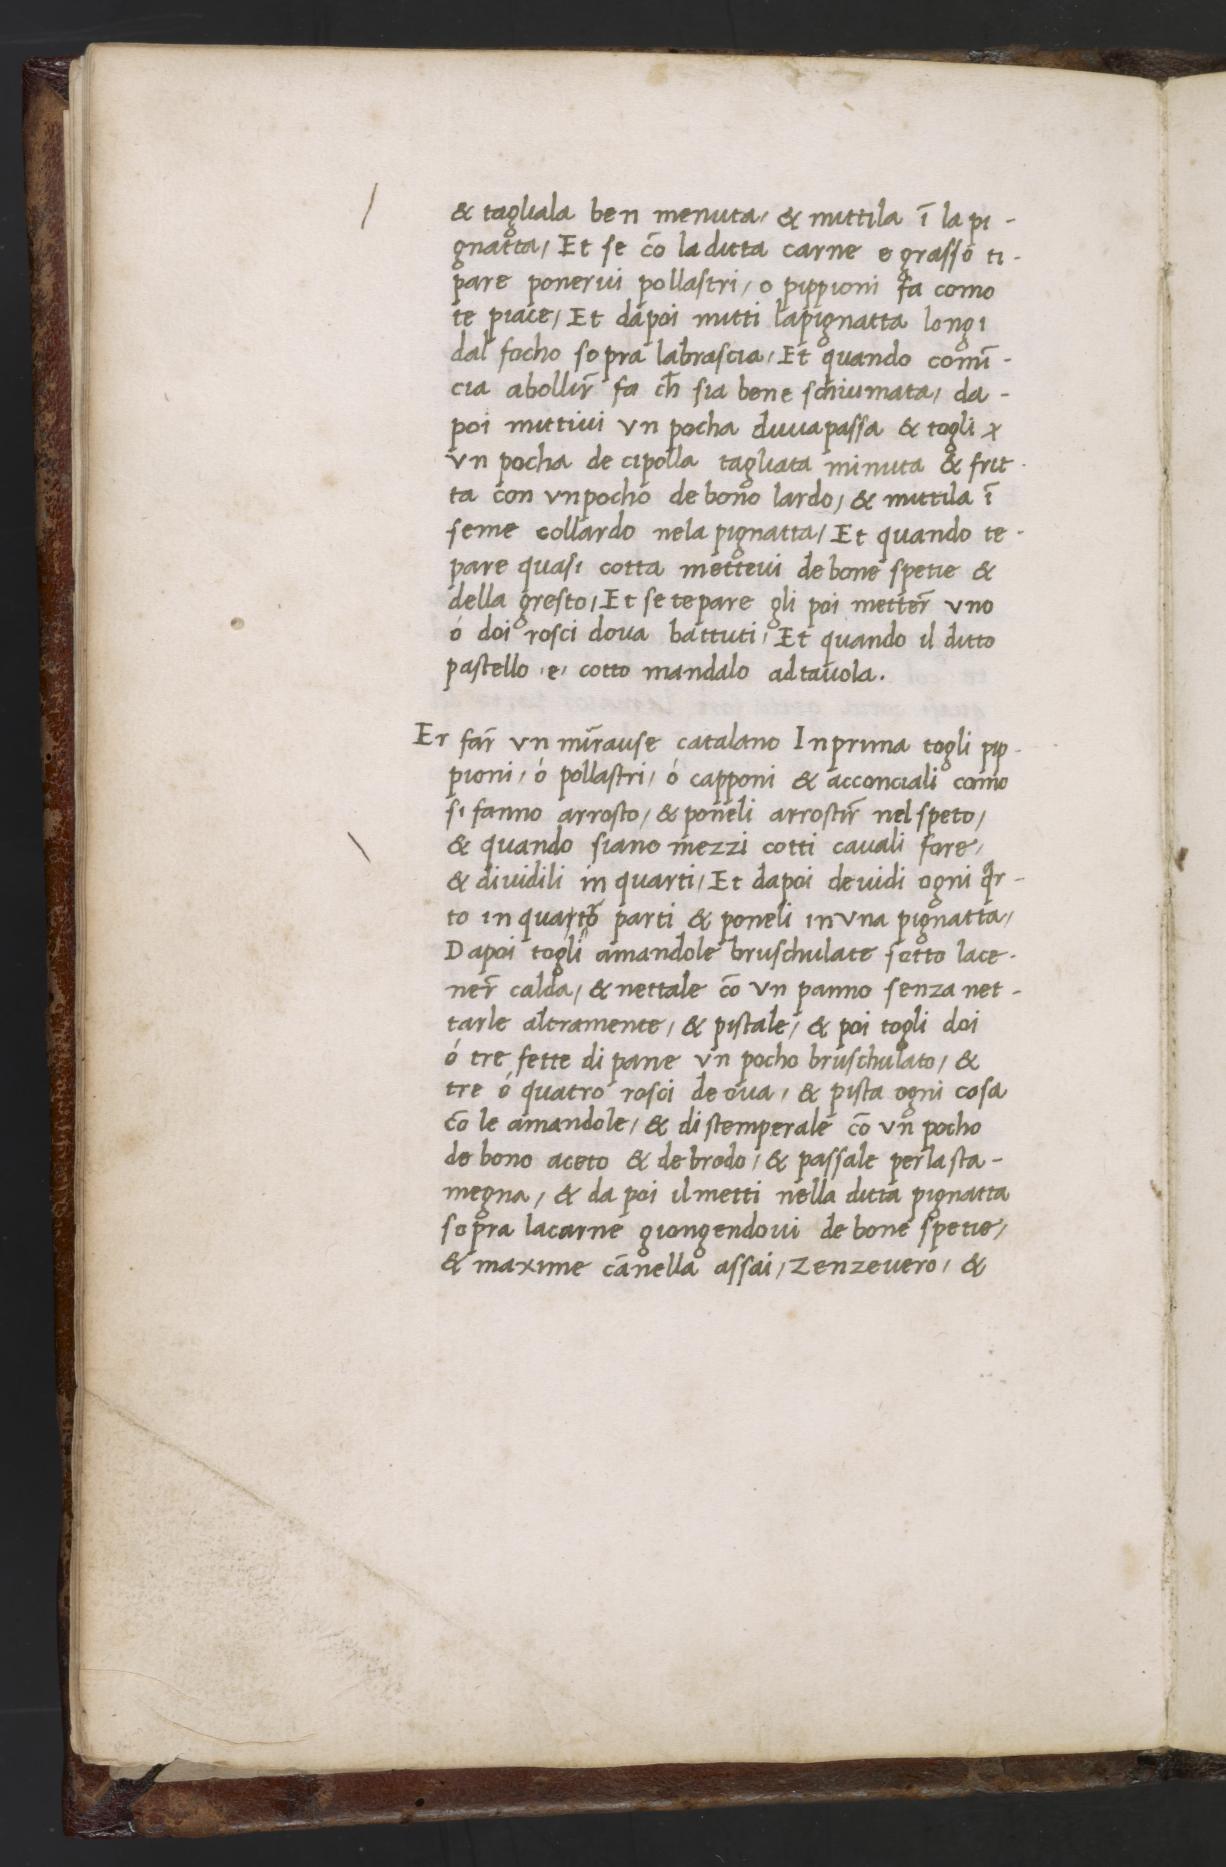 & tagliala ben menuta / & mittila ī la pi -
gnatta / Et se cō la ditta carne e grasso ti -
pare ponerui pollastri / o pippioni fa como
te piace / Et dapoi mitti lapignatta longi
dal focho sopra labrascia / Et quando comī -
cia abollir̄ fa ch̄ sia bene schiumata / da -
poi mittiui vn pocha duuapassa & togli
vn pocha de cipolla tagliata minuta & frit -
ta con vnpocho de bono lardo / & mittila ī
seme collardo nela pignatta / Et quando te -
pare quasi cotta metteui de bone spetie &
della gresto / Et se tepare gli poi metter̄ vno
ó doi rosci doua battuti / Et quando il ditto
pastello / e / cotto mandalo adtauola .
Er far̄ vn mirause catalano Inprima togli pip -
pioni / ó pollastri / ó capponi & acconciali como
si fanno arrosto / & poneli arrostir̄ nel speto /
& quando siano mezzi cotti cauali fore /
& diuidili in quarti / Et dapoi deuidi ogni qr -
to in quarto parti & poneli in vna pignatta /
Dapoi togli amandole bruschulate sotto lace -
ner̄ calda / & nettale cō vn panno senza net -
tarle altramente / & pistale / & poi togli doi
ó tre fette di pane vn pocho bruschulato / &
tre ó quatro rosci de oua / & pista ogni cosa
cō le amandole / & distemperale cō vn pocho
de bono aceto & de brodo / & passale perlasta -
megna / & da poi il metti nella ditta pignatta
sopra lacarne giongendoui de bone spetie /
& maxime cānella assai / zenzeuero / &